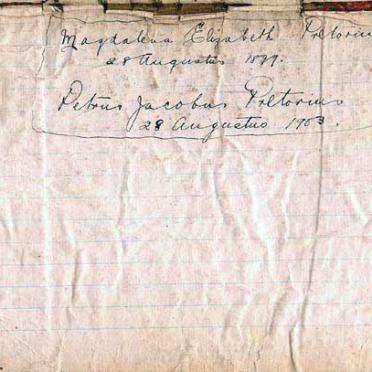 Magdalena Elizabeth Pretoriu
28 Augustus
Petrus Jacobus Pretorius
28 Augustus 1903.